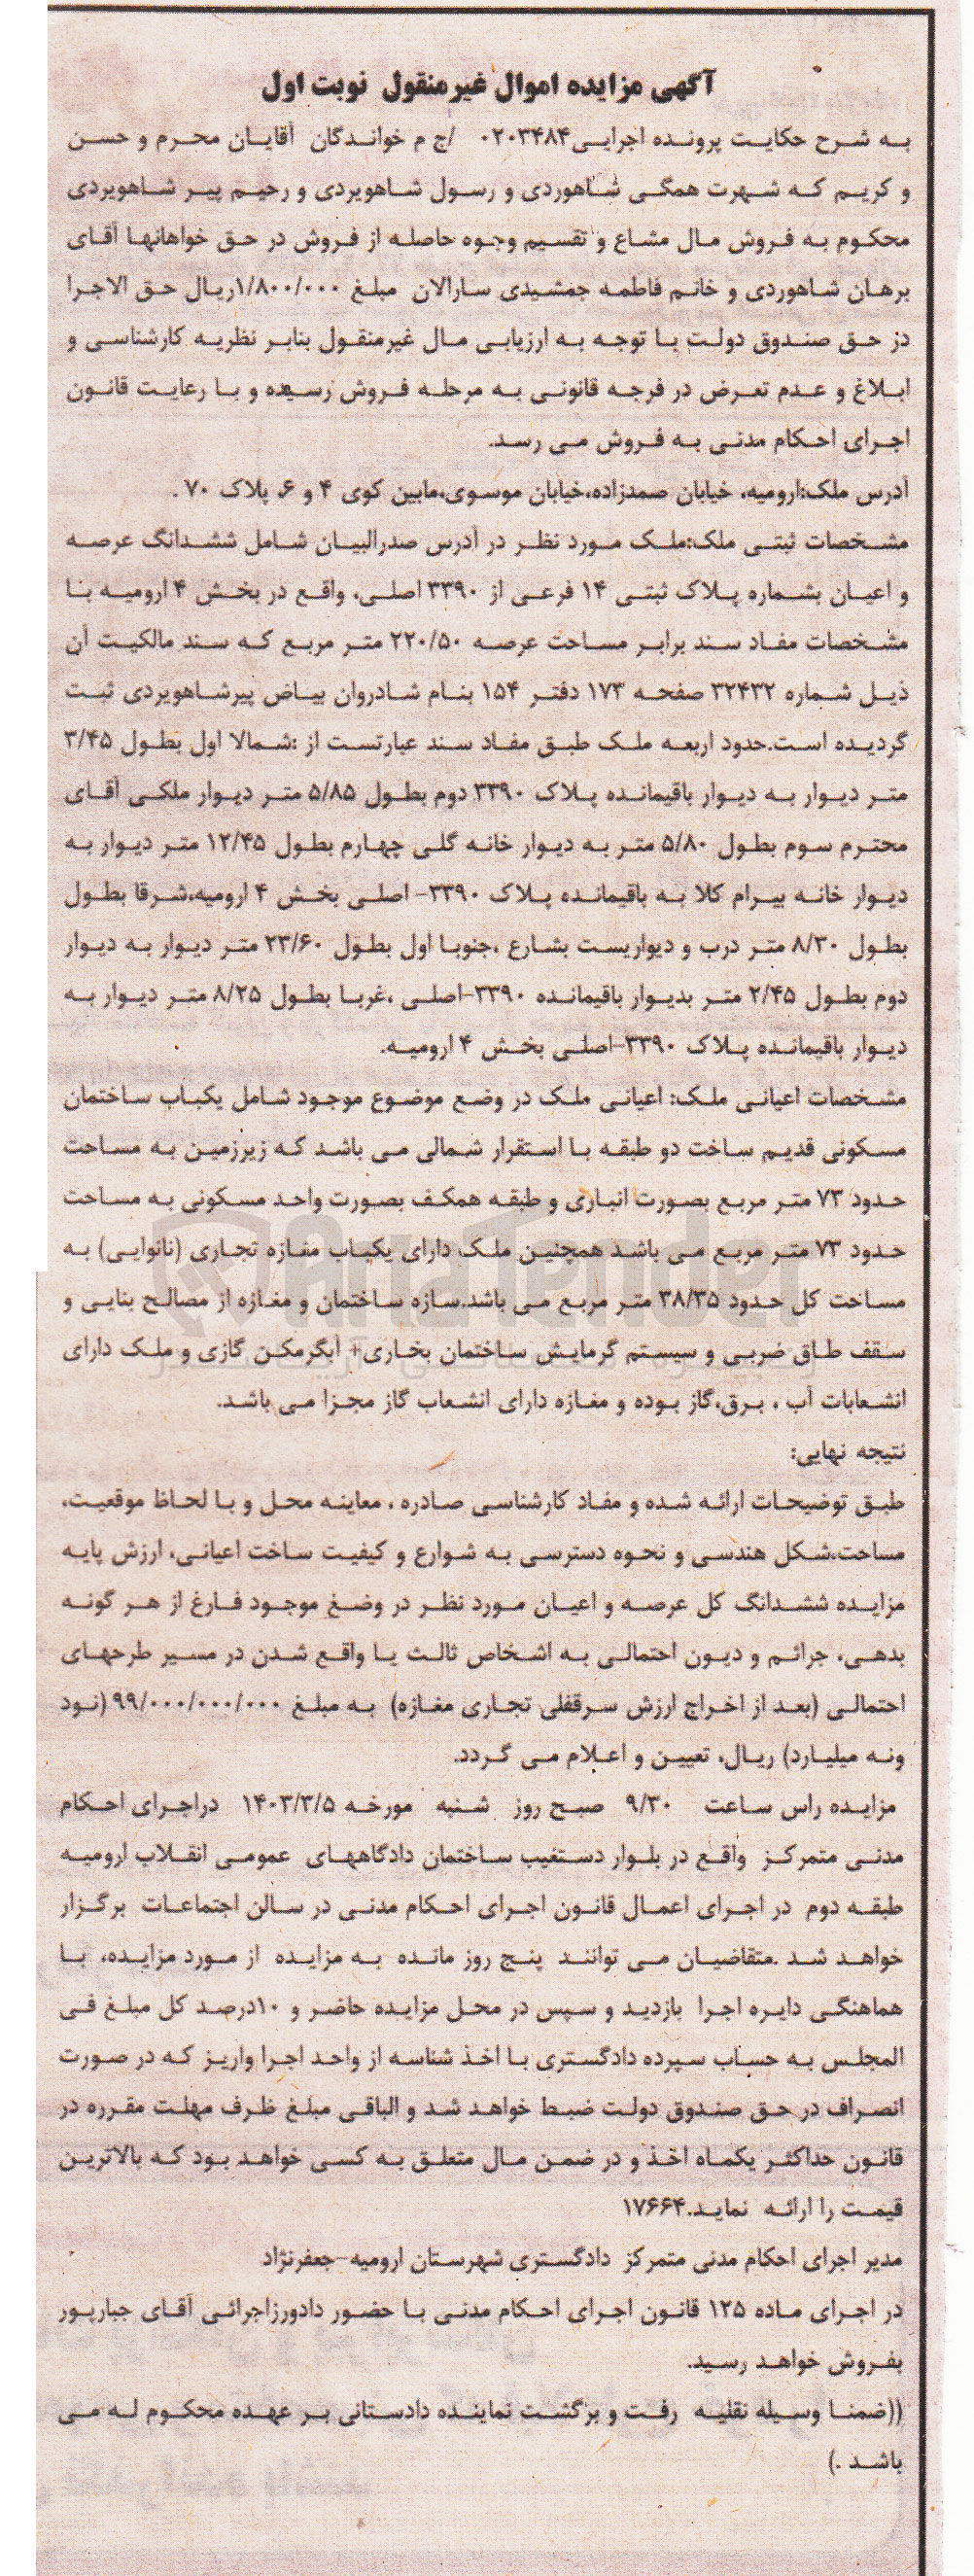 آگهی مزایده اموال غیرمنقول نوبت اول
به شرح حکایت پرونده اجرایی ۰۲۰۳۴۸۴ /ج م خواندگان آقایان محرم و حسن
و کریم که شهرت همگی شاهوردی و رسول شاهویردی و رحیم پیر شاهویردی
محکوم به فروش مال مشاع و تقسیم وجوه حاصله از فروش در حق خواهانها آقای
برهان شاهوردی و خانم فاطمه جمشیدی سارالان مبلغ ۱/۸۰۰/۰۰۰ریال حق الاجرا
در حق صندوق دولت با توجه به ارزیابی مال غیرمنقول بنابر نظریه کارشناسی و
ابلاغ و عدم تعرض در فرجه قانونی به مرحله فروش رسیده و با رعایت قانون
اجرای احکام مدنی به فروش می رسد.
آدرس ملک:ارومیه، خیابان صمدزاده،خیابان موسوی،مابین کوی ۴ و ۶، پلاک ۷۰ .
مشخصات ثبتی ملک:ملک مورد نظر در آدرس صدرالبیان شامل ششدانگ عرصه
و اعیان بشماره پلاک ثبتی ۱۴ فرعی از ۳۳۹۰ اصلی، واقع در بخش ۴ ارومیه با
مشخصات مفاد سند برابر مساحت عرصه ۲۲۰/۵۰ متر مربع که سند مالکیت آن
ذیل شماره ۳۲۴۳۲ صفحه ۱۷۳ دفتر ۱۵۴ بنام شادروان بیاض پیرشاهویردی ثبت
گردیده است.حدود اربعه ملک طبق مفاد سند عبارتست از :شمالا اول بطول ۳/۴۵
متر دیوار به دیوار باقیمانده پلاک ۳۳۹۰ دوم بطول ۵/۸۵ متر دیوار ملکی آقای
محترم سوم بطول ۵/۸۰ متر به دیوار خانه گلی چهارم بطول ۱۲/۴۵ متر دیوار به
دیوار خانه بیرام کلا به باقیمانده پلاک ۳۳۹۰- اصلی بخش ۴ ارومیه،شرقا بطول
بطول ۸/۳۰ متر درب و دیواریست بشارع ،جنوبا اول بطول ۲۳/۶۰ متر دیوار به دیوار
دوم بطول ۲/۴۵ متر بدیوار باقیمانده ۳۳۹۰-اصلی ،غربا بطول ۸/۲۵ متر دیوار به
دیوار باقیمانده پلاک ۳۳۹۰-اصلی بخش ۴ ارومیه.
مشخصات اعیانی ملک: اعیانی ملک در وضع موضوع موجود شامل یکباب ساختمان
مسکونی قدیم ساخت دو طبقه با استقرار شمالی می باشد که زیرزمین به مساحت
حدود ۷۳ متر مربع بصورت انباری و طبقه همکف بصورت واحد مسکونی به مساحت
حدود ۷۳ متر مربع می باشد همچنین ملک دارای یکباب مغازه تجاری (نانوایی) به
مساحت کل حدود ۳۸/۳۵ متر مربع می باشد.سازه ساختمان و مغازه از مصالح بنایی و
سقف طاق ضربی و سیستم گرمایش ساختمان بخاری+ آبگرمکن گازی و ملک دارای
انشعابات آب ، برق،گاز بوده و مغازه دارای انشعاب گاز مجزا می باشد.
نتیجه نهایی:
طبق توضیحات ارائه شده و مفاد کارشناسی صادره ، معاینه محل و با لحاظ موقعیت،
مساحت،شکل هندسی و نحوه دسترسی به شوارع و کیفیت ساخت اعیانی، ارزش پایه
مزایده ششدانگ کل عرصه و اعیان مورد نظر در وضع موجود فارغ از هر گونه
بدهی، جرائم و دیون احتمالی به اشخاص ثالث یا واقع شدن در مسیر طرحهای
احتمالی (بعد از اخراج ارزش سرقفلی تجاری مغازه) به مبلغ ۹۹/۰۰۰/۰۰۰/۰۰۰ (نود
ونه میلیارد) ریال، تعیین و اعلام می گردد.
مزایده راس ساعت ۹/۳۰ صبح روز شنبه مورخه ۱۴۰۳/۳/۵ دراجرای احکام
مدنی متمرکز واقع در بلوار دستغیب ساختمان دادگاههای عمومی انقلاب ارومیه
طبقه دوم در اجرای اعمال قانون اجرای احکام مدنی در سالن اجتماعات برگزار
خواهد شد .متقاضیان می توانند پنج روز مانده به مزایده از مورد مزایده، با
هماهنگی دایره اجرا بازدید و سپس در محل مزایده حاضر و ۱۰درصد کل مبلغ فی
المجلس به حساب سپرده دادگستری با اخذ شناسه از واحد اجرا واریز که در صورت
انصراف در حق صندوق دولت ضبط خواهد شد و الباقی مبلغ ظرف مهلت مقرره در
قانون حداکثر یکماه اخذ و در ضمن مال متعلق به کسی خواهد بود که بالاترین
قیمت را ارائه نماید.۱۷۶۶۴
مدیر اجرای احکام مدنی متمرکز دادگستری شهرستان ارومیه-جعفرنژاد
در اجرای ماده ۱۲۵ قانون اجرای احکام مدنی با حضور دادورزاجرائی آقای جبارپور
بفروش خواهد رسید.
((ضمنا وسیله نقلیه رفت و برگشت نماینده دادستانی بر عهده محکوم له می
باشد .)
AriaTender